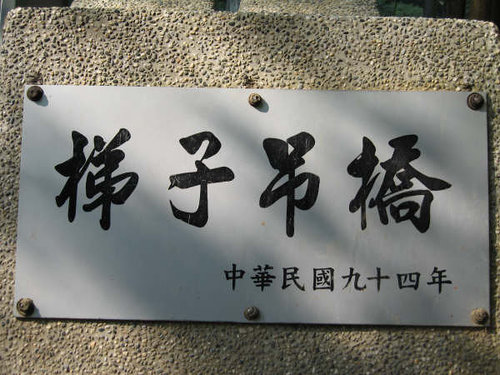 梯子吊橋
中華民國九十四年